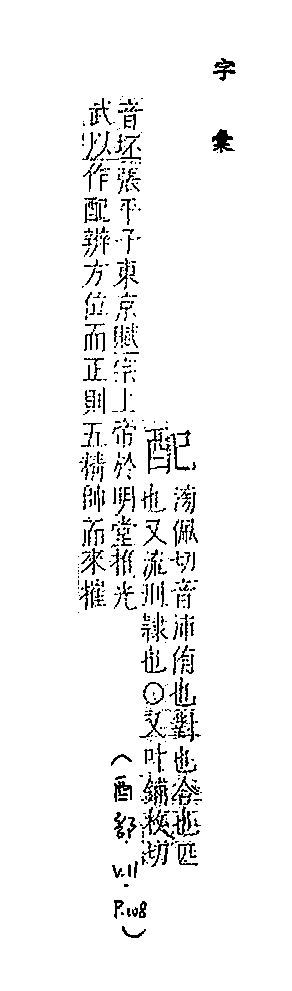 字彙
配
滂佩切音沛侑也對也合也匹
也又流刑隸也○又叶鋪枚切
音坯張平子東京賦宗上帝於明堂推光
武以作配辨方位而正則五精帥而來摧
(酉部 V.11
P.108)